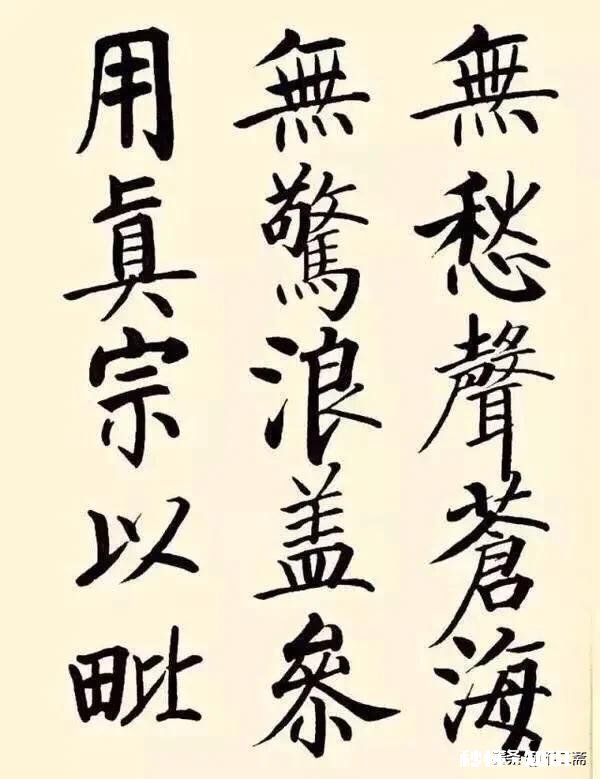 無愁聲蒼海
無驚浪盖參
用眞宗以毗